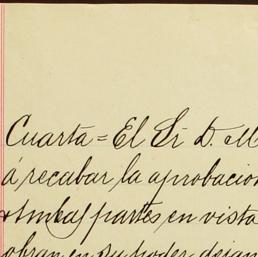 Cuarta = El Sr D. M
á recabar la aprobacion
ambas partes en vista
obran en su poder, dejan